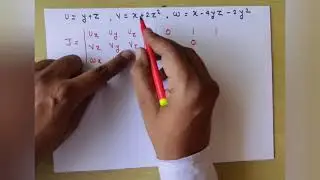 U = y+z , V = x+2z² , W = x-4yz-2y²
J = | Ux Uy Uz 0 1 1
Vx Vy Vz 0
Wx